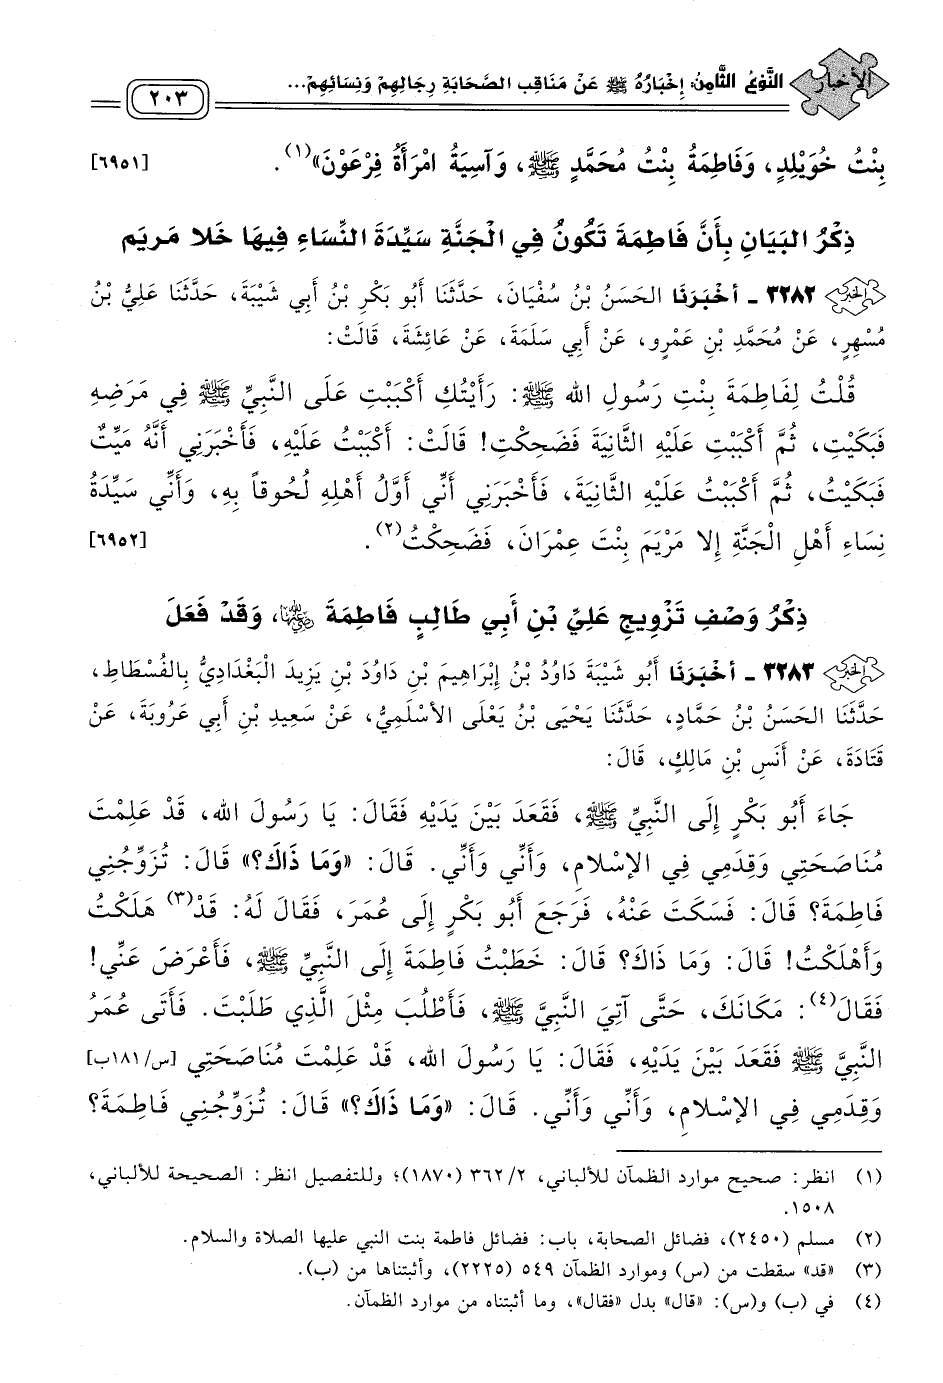 الأخبار النَّوْعُ الثَّامِنُ: إِخْبَارُهُ ﷺ عَنْ مَنَاقِبِ الصَّحَابَةِ رِجَالِهِمْ وَنِسَائِهِمْ...
٢٠٣
بِنْتُ خُوَيْلِدٍ، وَفَاطِمَةُ بِنْتُ مُحَمَّدٍ ﷺ، وَآسِيَةُ امْرَأَةُ فِرْعَوْنَ»(١). [٦٩٥١]
ذِكْرُ البَيَانِ بِأَنَّ فَاطِمَةَ تَكُونُ فِي الْجَنَّةِ سَيِّدَةَ النِّسَاءِ فِيهَا خَلا مَريَم
٣٢٨٢ ـ أَخْبَرَنَا الحَسَنُ بْنُ سُفْيَانَ، حَدَّثَنَا أَبُو بَكْرِ بْنُ أَبِي شَيْبَةَ، حَدَّثَنَا عَلِيُّ بْنُ
مُسْهِرٍ، عَنْ مُحَمَّدِ بْنِ عَمْرٍو، عَنْ أَبِي سَلَمَةَ، عَنْ عَائِشَةَ، قَالَتْ:
قُلْتُ لِفَاطِمَةَ بِنْتِ رَسُولِ الله ﷺ: رَأَيْتُكِ أَكْبَبْتِ عَلَى النَّبِيِّ ﷺ فِي مَرَضِهِ
فَبَكَيْتِ، ثُمَّ أَكْبَبْتِ عَلَيْهِ الثَّانِيَةَ فَضَحِكْتِ! قَالَتْ: أَكْبَبْتُ عَلَيْهِ، فَأَخْبَرَنِي أَنَّهُ مَيِّتٌ
فَبَكَيْتُ، ثُمَّ أَكْبَبْتُ عَلَيْهِ الثَّانِيَةَ، فَأَخْبَرَنِي أَنِّي أَوَّلُ أَهْلِهِ لُحُوقاً بِهِ، وَأَنِّي سَيِّدَةُ
نِسَاءِ أَهْلِ الْجَنَّةِ إِلا مَرْيَمَ بِنْتَ عِمْرَانَ، فَضَحِكْتُ(٢). [٦٩٥٢]
ذِكْرُ وَصْفِ تَزْوِيجِ عَلِيِّ بْنِ أَبِي طَالِبٍ فَاطِمَةَ رضي الله عنها، وَقَدْ فَعَلَ
٣٢٨٣ ـ أَخْبَرَنَا أَبُو شَيْبَةَ دَاوُدُ بْنُ إِبْرَاهِيمَ بْنِ دَاوُدَ بْنِ يَزِيدَ الْبَغْدَادِيُّ بِالفُسْطَاطِ،
حَدَّثَنَا الحَسَنُ بْنُ حَمَّادٍ، حَدَّثَنَا يَحْيَى بْنُ يَعْلَى الأَسْلَمِيُّ، عَنْ سَعِيدِ بْنِ أَبِي عَرُوبَةَ، عَنْ
قَتَادَةَ، عَنْ أَنَسِ بْنِ مَالِكٍ، قَالَ:
جَاءَ أَبُو بَكْرٍ إِلَى النَّبِيِّ ﷺ، فَقَعَدَ بَيْنَ يَدَيْهِ فَقَالَ: يَا رَسُولَ الله، قَدْ عَلِمْتَ
مُنَاصَحَتِي وَقِدَمِي فِي الإِسْلامِ، وَأَنِّي وَأَنِّي. قَالَ: «وَمَا ذَاكَ؟» قَالَ: تُزَوِّجُنِي
فَاطِمَةَ؟ قَالَ: فَسَكَتَ عَنْهُ، فَرَجَعَ أَبُو بَكْرٍ إِلَى عُمَرَ، فَقَالَ لَهُ: قَدْ(٣) هَلَكْتُ
وَأَهْلَكْتُ! قَالَ: وَمَا ذَاكَ؟ قَالَ: خَطَبْتُ فَاطِمَةَ إِلَى النَّبِيِّ ﷺ، فَأَعْرَضَ عَنِّي!
فَقَالَ(٤): مَكَانَكَ، حَتَّى آتِيَ النَّبِيَّ ﷺ، فَأَطْلُبَ مِثْلَ الَّذِي طَلَبْتَ. فَأَتَى عُمَرُ
النَّبِيَّ ﷺ فَقَعَدَ بَيْنَ يَدَيْهِ، فَقَالَ: يَا رَسُولَ الله، قَدْ عَلِمْتَ مُنَاصَحَتِي [س/١٨١ب]
وَقِدَمِي فِي الإِسْلامِ، وَأَنِّي وَأَنِّي. قَالَ: «وَمَا ذَاكَ؟» قَالَ: تُزَوِّجُنِي فَاطِمَةَ؟
(١) انظر: صحيح موارد الظمآن للألباني، ٣٦٢/٢ (١٨٧٠)؛ وللتفصيل انظر: الصحيحة للألباني،
١٥٠٨.
(٢) مسلم (٢٤٥٠)، فضائل الصحابة، باب: فضائل فاطمة بنت النبي عليها الصلاة والسلام.
(٣) «قد» سقطت من (س) وموارد الظمآن ٥٤٩ (٢٢٢٥)، وأثبتناها من (ب).
(٤) في (ب) و(س): «قال» بدل «فقال»، وما أثبتناه من موارد الظمآن.